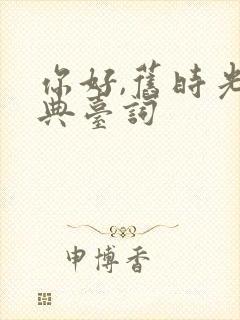 你好,舊時光
典臺詞
申博香